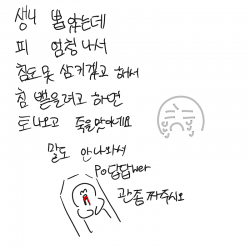 생니 뽑았는데
피 엄청나서
침도못 삼키겠고 해서
침 뱉을려고 하면
토나오고 죽을맛이에요
말도 안나와서
Po답답wer
관좀 짜주시오